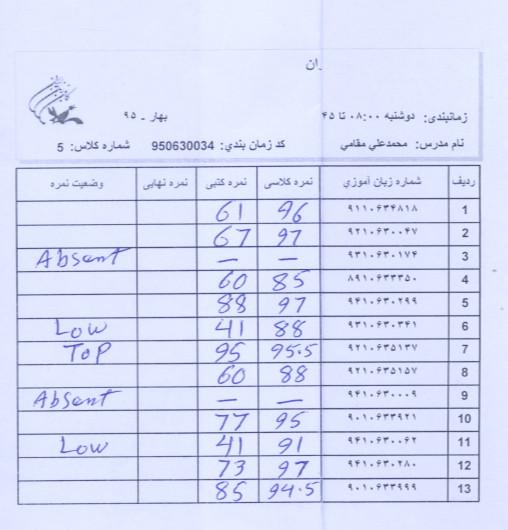 ان
زمانبندی: دوشنبه ۰۸:۰۰ تا ۴۵ بهار ـ ۹۵
نام مدرس: محمدعلي مقامي کد زمان بندي: 950630034 شماره کلاس: 5
ردیف شماره زبان آموزي نمره کلاسی نمره کتبی نمره نهایی وضعیت نمره
1 ۹۱۱۰۶۳۴۸۱۸ 96 61
2 ۹۲۱۰۶۳۰۰۴۷ 97 67
3 ۹۳۱۰۶۳۰۱۷۴ — — Absent
4 ۸۹۱۰۶۳۳۳۵۰ 85 60
5 ۹۴۱۰۶۳۰۲۹۹ 97 88
6 ۹۳۱۰۶۳۰۳۴۱ 88 41 Low
7 ۹۲۱۰۶۳۵۱۳۷ 95.5 95 Top
8 ۹۲۱۰۶۳۵۱۵۷ 88 60
9 ۹۴۱۰۶۳۰۰۰۹ — — Absent
10 ۹۰۱۰۶۳۳۹۲۱ 95 77
11 ۹۴۱۰۶۳۰۰۶۲ 91 41 Low
12 ۹۴۱۰۶۳۰۲۸۰ 97 73
13 ۹۰۱۰۶۳۳۹۹۹ 94.5 85